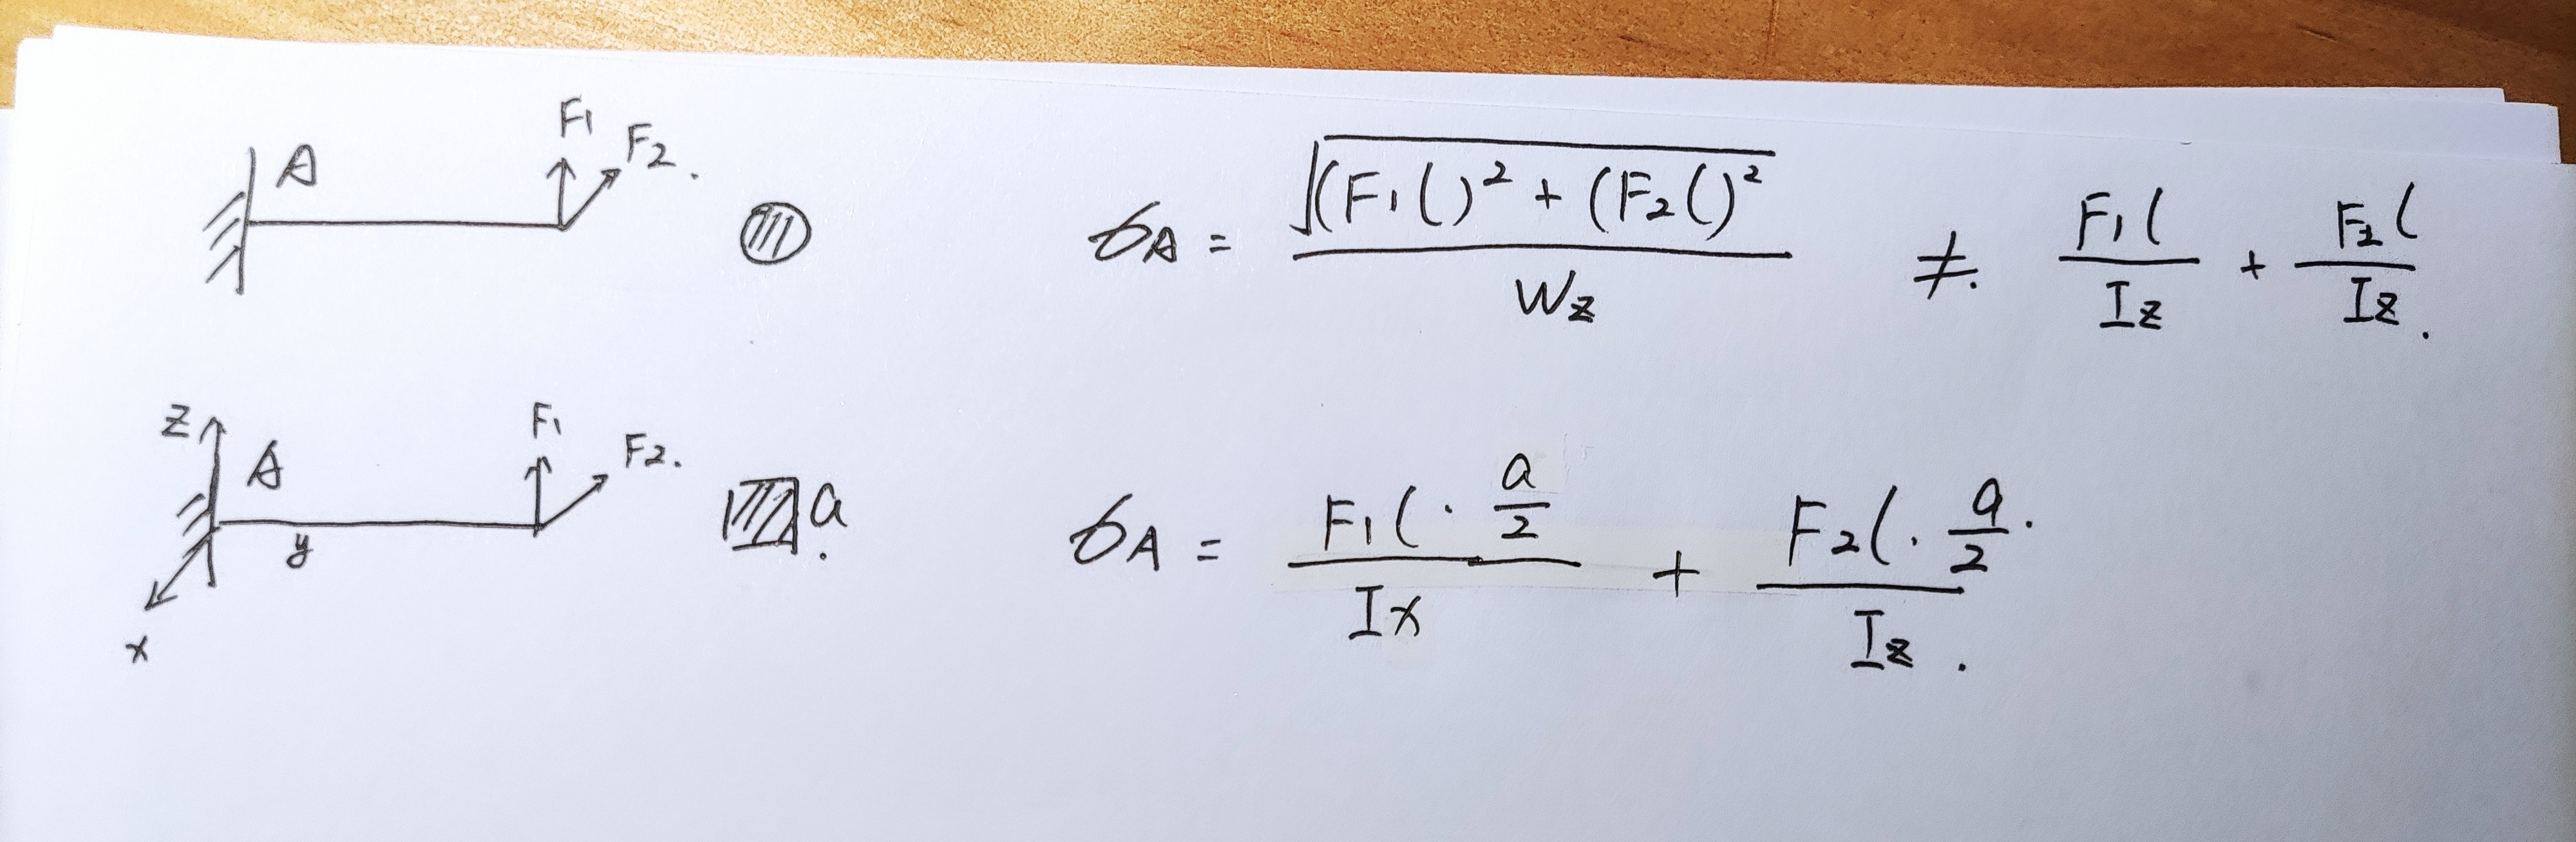 A F1 F2.
σA = √((F1l)² + (F2l)²) / Wz ≠. F1l / Iz + F2l / Iz.
z A F1 F2. a.
y
x
σA = F1l · a/2 / Ix + F2l · a/2. / Iz.